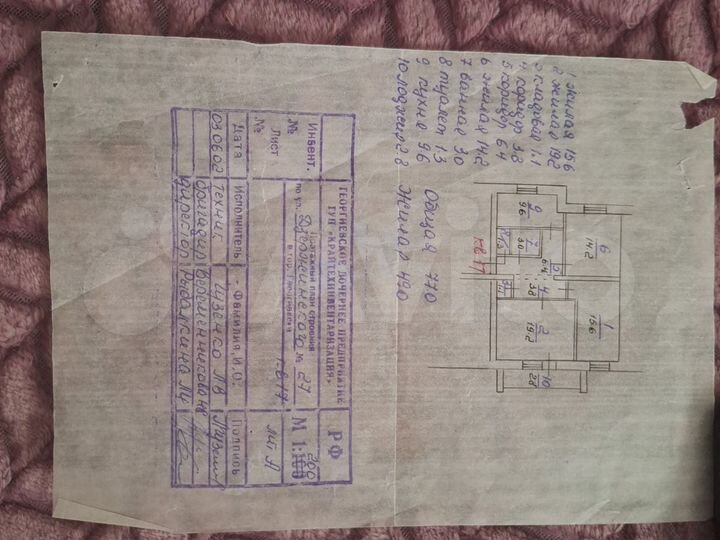 1 жилая 15.6
2 жилая 19.2
3 кладовая 1.1
4 коридор 3.8
5 коридор 6.4
6 жилая 14.2
7 ванная 3.0
8 туалет 1.3
9 кухня 9.6
10 лоджия 2.8
Общая 77.0
Жилая 49.0
9
9.6
6
14.2
7
3.0
8
1.3
5
6.4
кв 17
4
3.8
3
1.1
2
19.2
1
15.6
10
2.8
ГЕОРГИЕВСКОЕ ДОЧЕРНЕЕ ПРЕДПРИЯТИЕ
ГУП «КРАЙТЕХИНВЕНТАРИЗАЦИЯ»
РФ
Инвент.
№
Поэтажный план строения
в гор. Георгиевске
по ул. Дзержинского № 27
кв 17
М 1:100
200
Лист
№
лит А
Дата
Исполнитель
Фамилия, И., О.
Подпись
03.06.02
Техник
Гузенко Л В
Бригадир
Директор